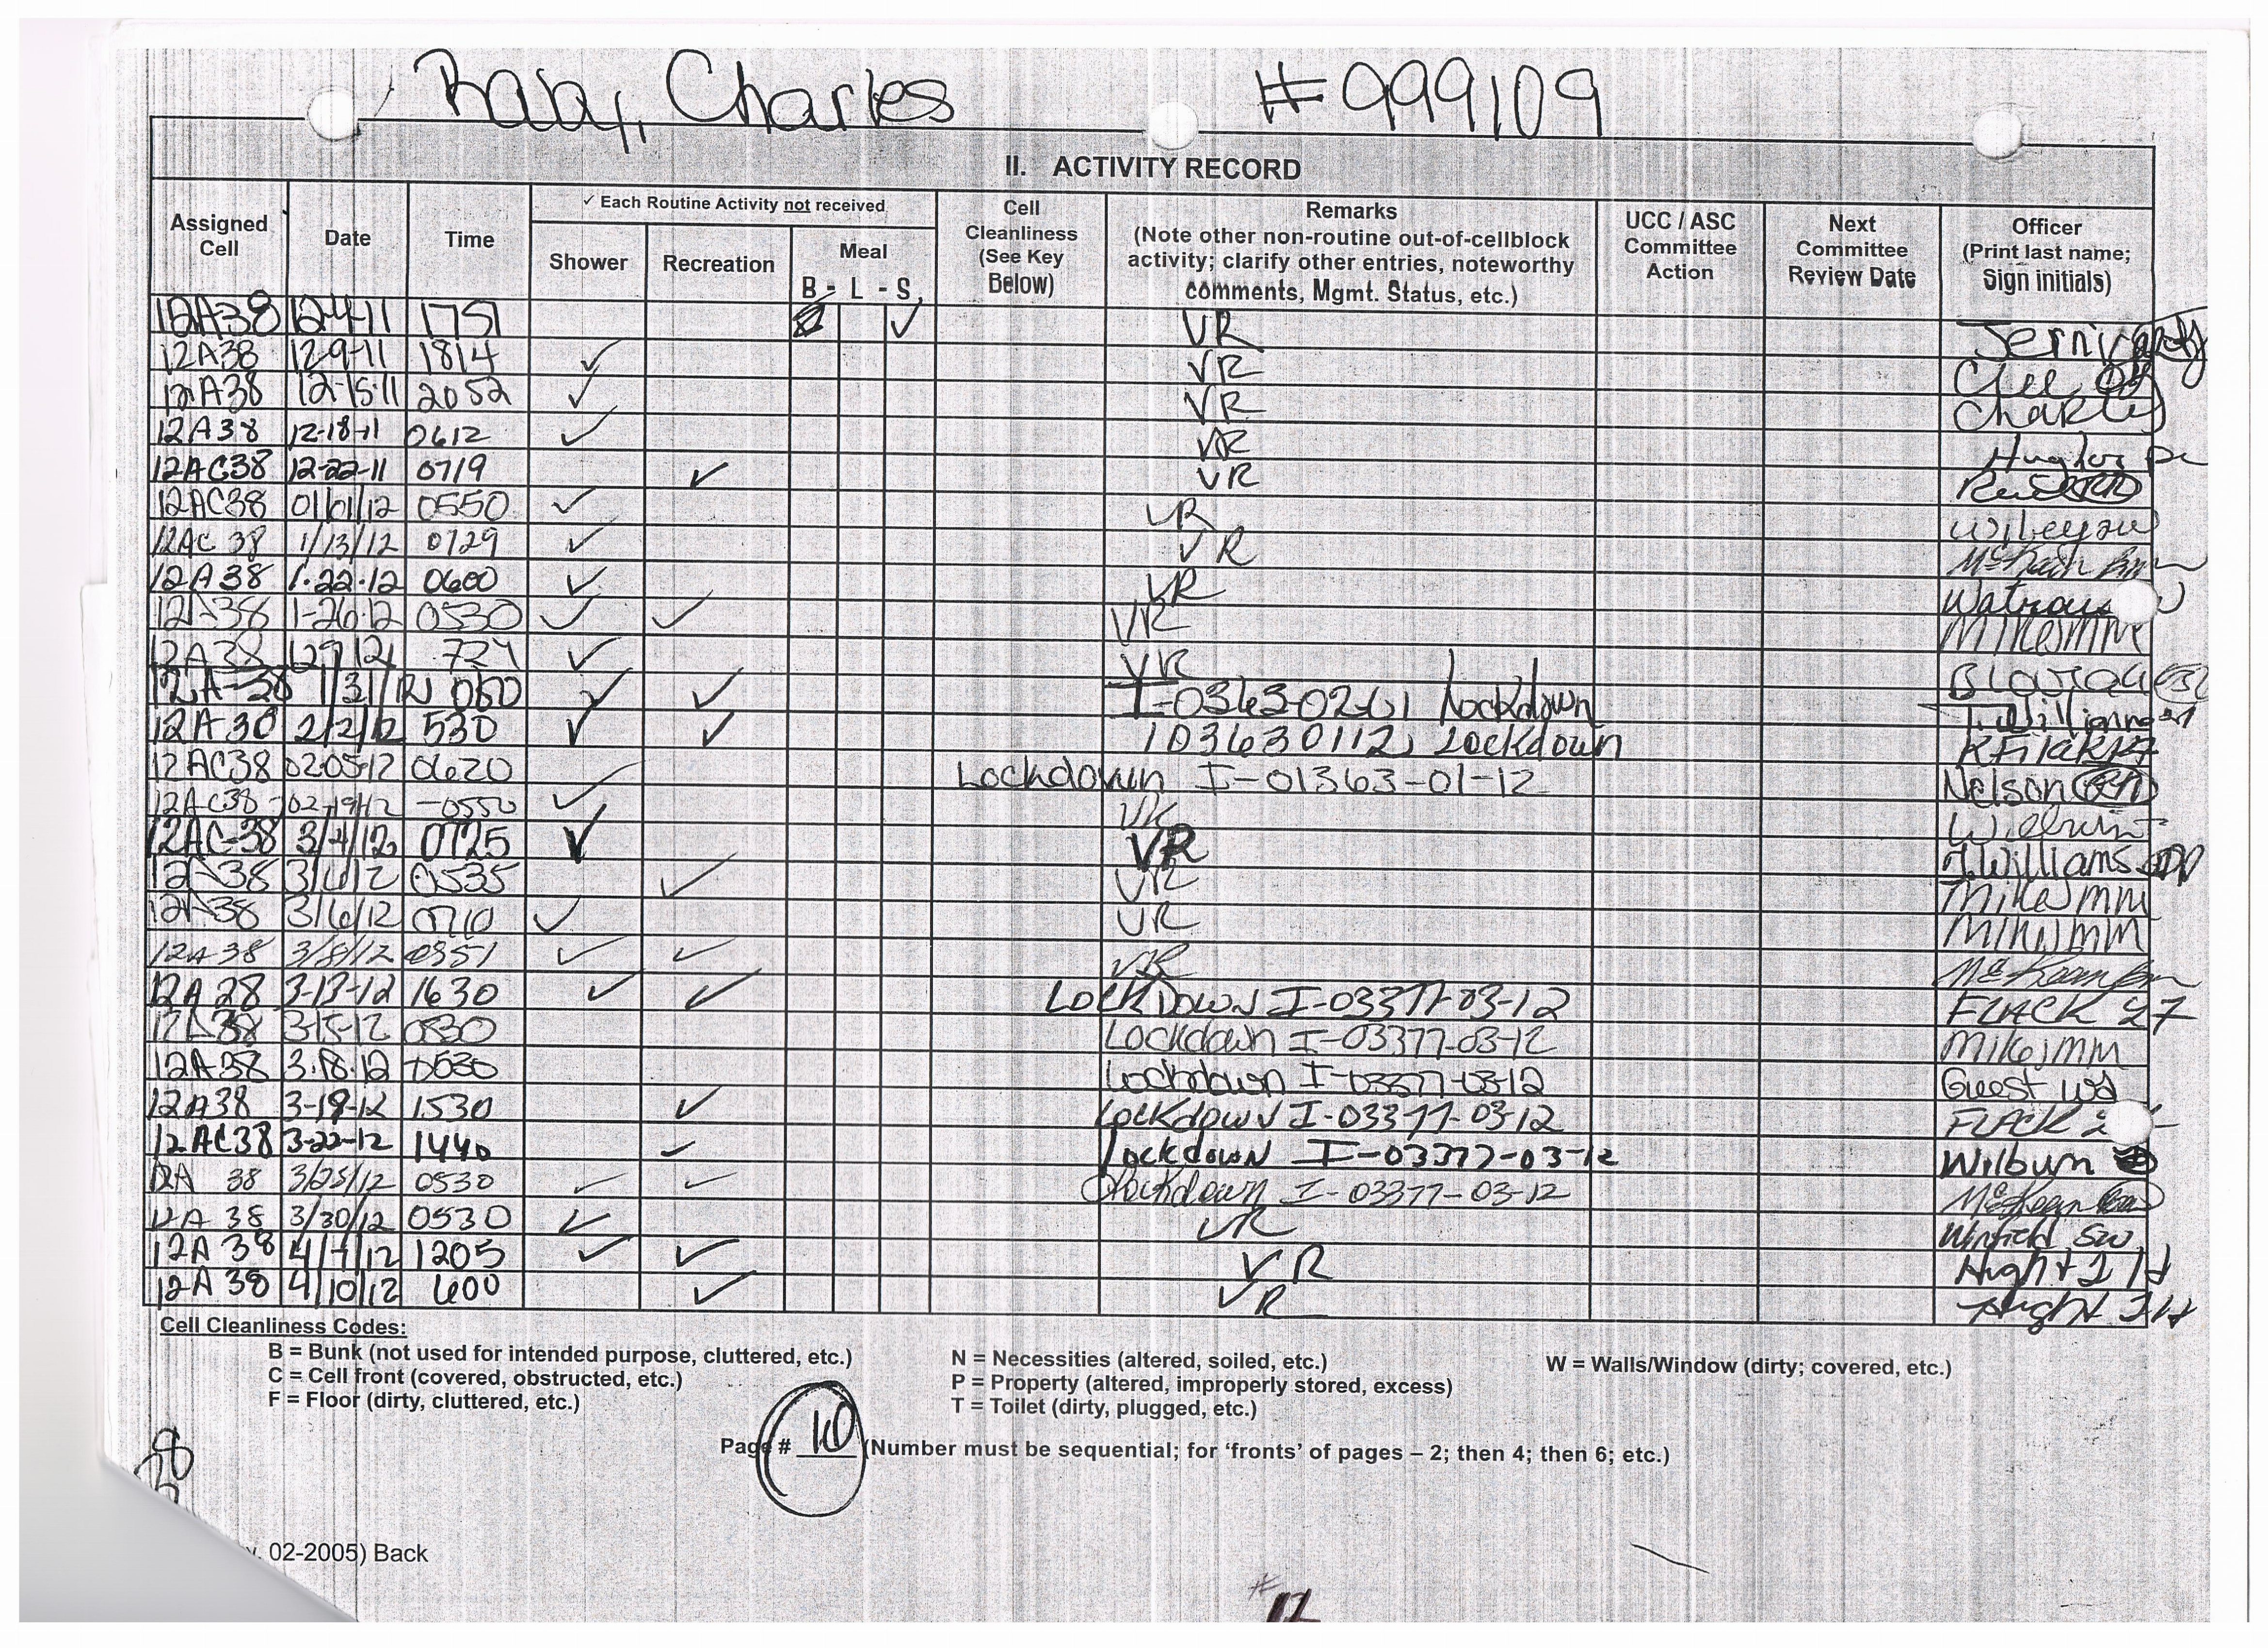 Raby, Charles #999109
II. ACTIVITY RECORD
Assigned Cell Date Time ✓ Each Routine Activity not received Shower Recreation Meal B - L - S Cell Cleanliness (See Key Below) Remarks (Note other non-routine out-of-cellblock activity; clarify other entries, noteworthy comments, Mgmt. Status, etc.) UCC / ASC Committee Action Next Committee Review Date Officer (Print last name; Sign initials)
12A38 12-4-11 1751 ✓ VR
12A38 12-9-11 1814 ✓ VR Clee
12A38 12-15-11 2052 ✓ VR Charles
12A38 12-18-11 0612 ✓ VR
12AC38 12-22-11 0719 ✓ VR
12AC38 01/01/12 0550 ✓ VR
12AC 38 1/13/12 0729 ✓ VR
12A38 1-22-12 0600 ✓ VR
12A38 1-26-12 0530 ✓ ✓ VR Mikes MM
12A38 724 ✓ VR
12A-38 ✓ ✓ Lockdown
12A30 2/2/12 530 ✓ ✓ 103630112 Lockdown
12AC38 02-05-12 0620 ✓ Lockdown I-01363-01-12 Nelson
12AC38 02-19-12 -0550 ✓ VR
12AC-38 3/4/12 0725 ✓ VR J. Williams
12A-38 0535 ✓ VR Mikes MM
12A-38 3/6/12 0710 ✓ VR Mikes MM
12A 38 3/8/12 0351 ✓ ✓ VR
12A 28 3-13-12 1630 ✓ ✓ LOCKDOWN I-03377-03-12 FLACK
12A38 3-15-12 0530 Lockdown I-03377-03-12 Mikes MM
12A38 3-18-12 0530 Lockdown I-03377-03-12 Guest
12A38 3-19-12 1530 ✓ Lockdown I-03377-03-12 FLACK
12AC38 3-22-12 1440 ✓ Lockdown I-03377-03-12 Wilburn
12A 38 3/25/12 0530 ✓ ✓ Lockdown I-03377-03-12
12A 38 3/30/12 0530 ✓ VR Winfield SW
12A 38 1205 ✓ ✓ VR Hight
12A 38 4/10/12 600 ✓ VR Hight
Cell Cleanliness Codes:
B = Bunk (not used for intended purpose, cluttered, etc.) N = Necessities (altered, soiled, etc.) W = Walls/Window (dirty; covered, etc.)
C = Cell front (covered, obstructed, etc.) P = Property (altered, improperly stored, excess)
F = Floor (dirty, cluttered, etc.) T = Toilet (dirty, plugged, etc.)
Page # 10 (Number must be sequential; for ‘fronts’ of pages – 2; then 4; then 6; etc.)
02-2005) Back
#12